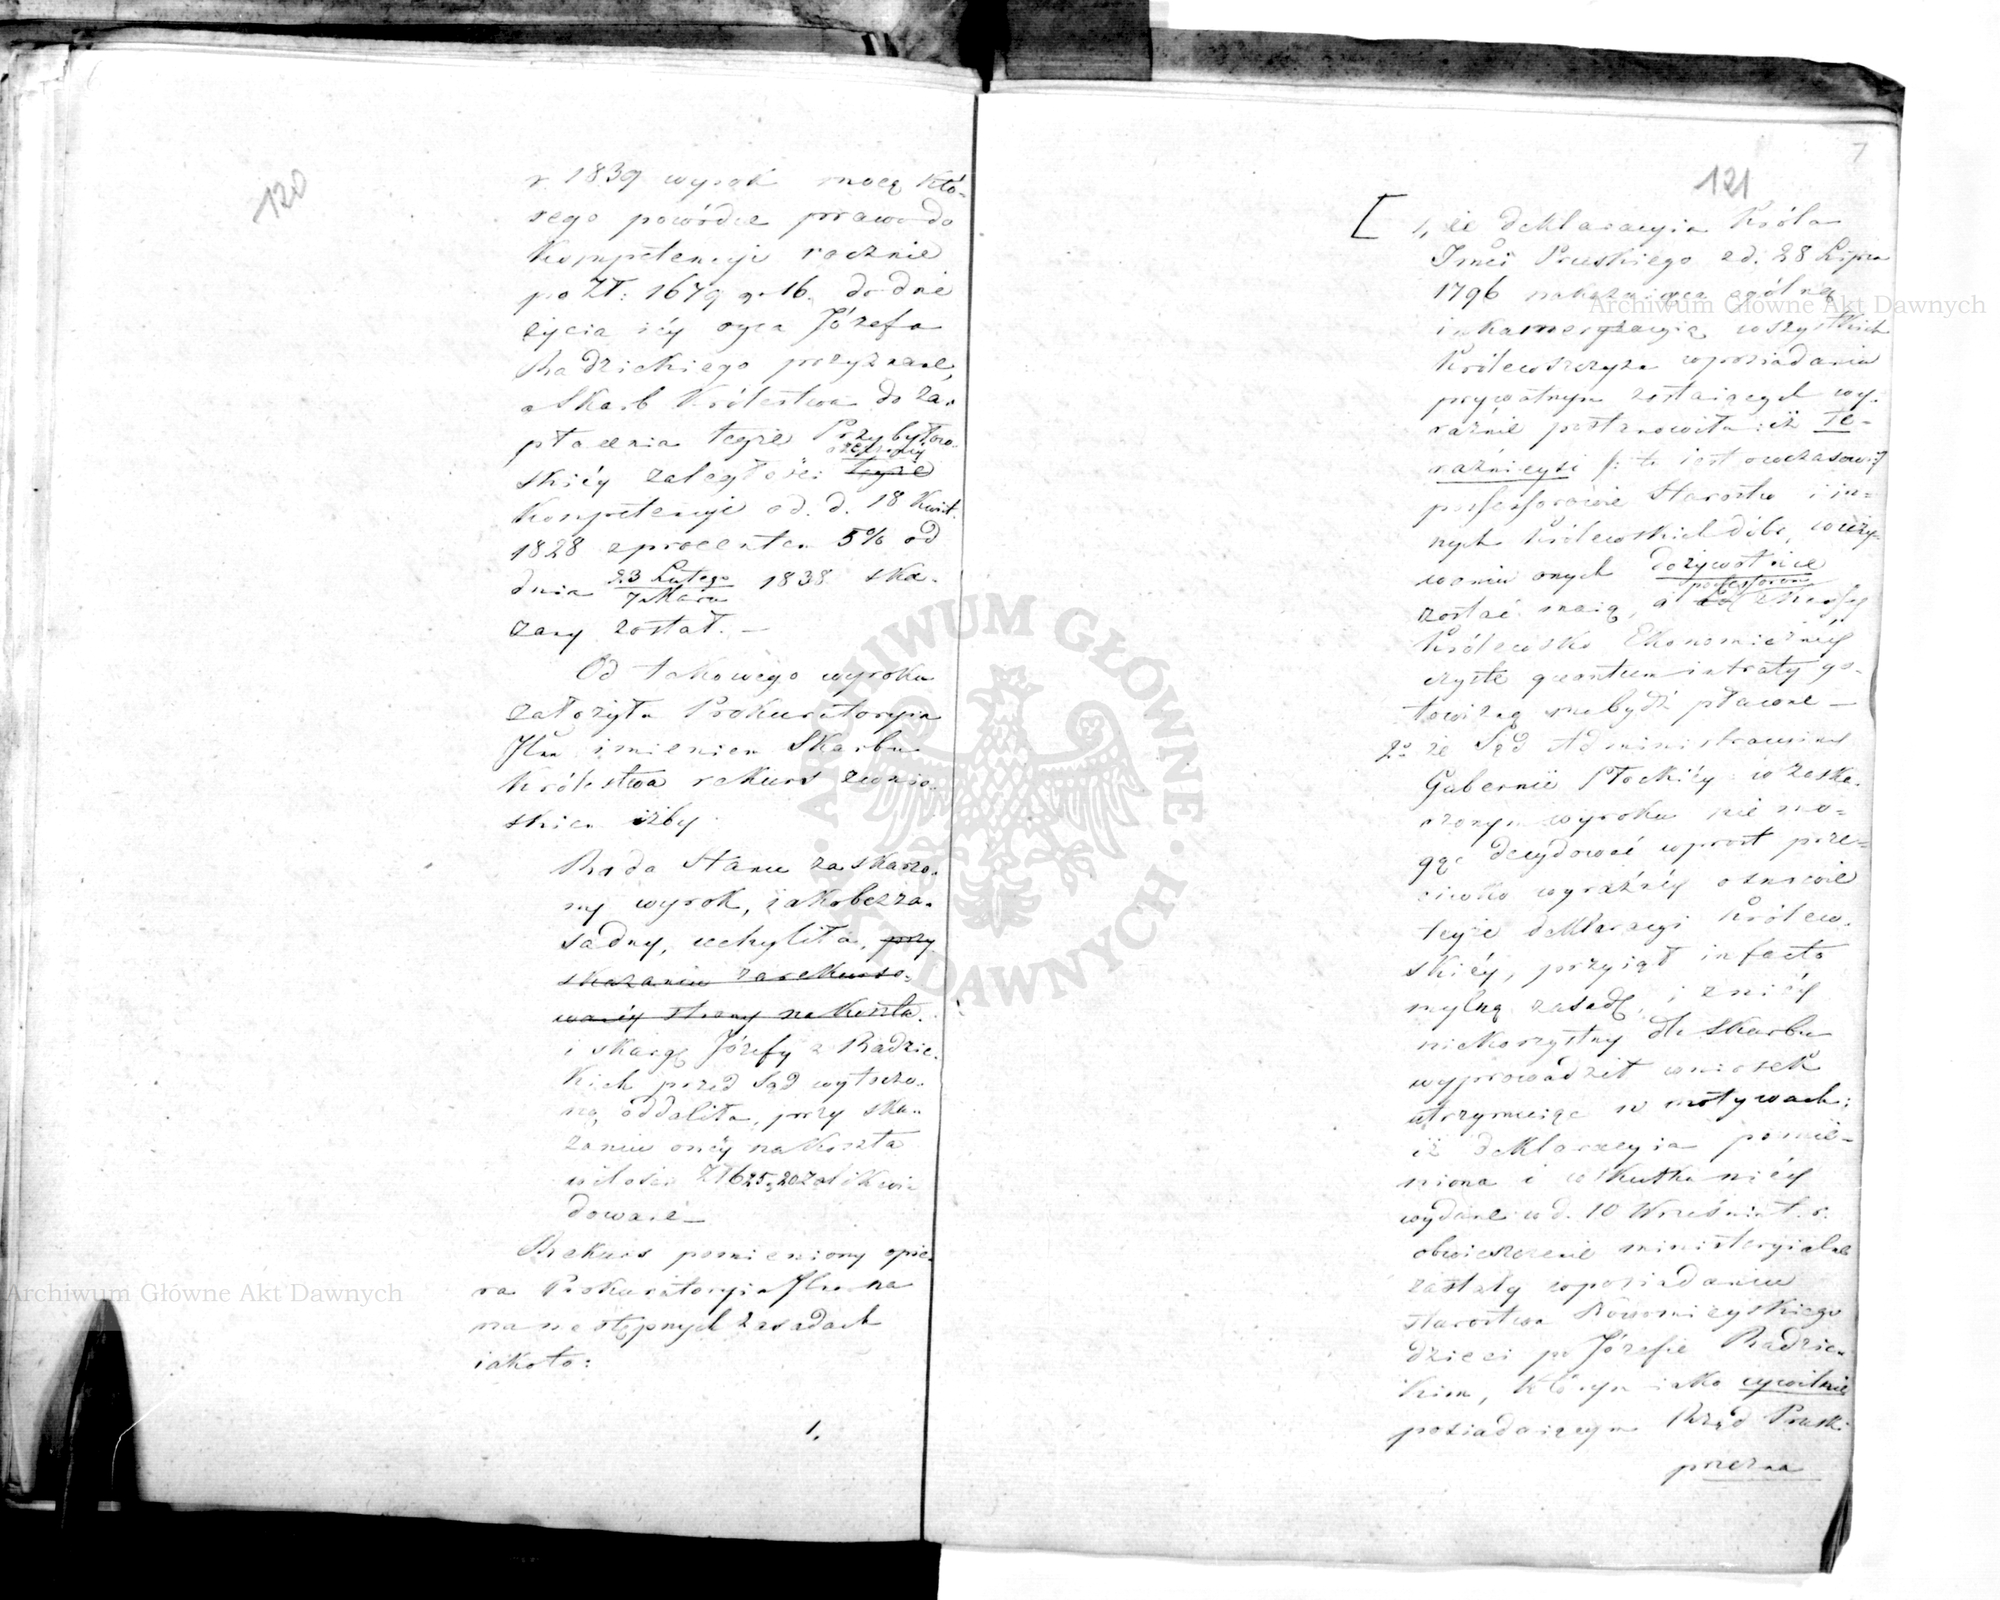 120
r. 1839 wyrok mocą któ-
rego powódce prawo do
kompetencyi rocznie
po Zł: 1679 gr 16. do dni
życia iéy oyca Józefa
Radzickiego przyznane,
a Skarb Królestwa do za-
płacenia teyże Przybyłow-
rzeczonéy
skiéy zaległości teyże
kompetencyi od d. 18 Kwit.
1828 z procentem 5% od
dnia 23 Lutego 1838 ska-
7 Marca
zany został. —
Od takowego wyroku
założyła Prokuratorya
Jlna imieniem Skarbu
Królestwa rekurs z wnio-
skiem iżby
Rada Stanu zaskarżo-
ny wyrok, iako bezza-
sadny, uchyliła, przy
skazaniu zarekurso-
wanéy strony na koszta.
i skargę Józefy z Radzic-
kich przed Sąd wytoczo-
ną oddaliła, przy ska-
zaniu onéy na koszta
w ilości Zł 625, 20 zalikwi
dowane —
Rekurs pomieniony opie-
ra Prokuratorya Jlna na
na następnych zasadach
iakoto:
1.
7
121
1, że deklaracyia Króla
Jmci Pruskiego z d. 28 Lipca
1796 nakazuiąca ogólną
inkameryzacyią wszystkich
Królewszczyzn w posiadaniu
prywatnym zostaiących wy-
raźnie postanowiła: iż te-
raźnieysi /: to iest owczasowi :/
possessorowie Starostw i in-
nych Królewskich dóbr, w uży-
waniu onych dożywotnie
possessorom
zostać maią, a z kassy
Królewsko Ekonomicznéy
czyste quantum intraty go-
towizną ma bydź płacone —
2o że Sąd Administracyiny
Gubernii Płockiéy w zaska-
rżonym wyroku nie mo-
gąc decydować wprost prze-
ciwko wyraźnéy osnowie
teyże deklaracyi Królew-
skiéy, przyiął in facto
mylną zasadę, i z niéy
niekorzystny dla Skarbu
wyprowadził wniosek
utrzymuiąc w motywach:
iż deklaracyia pomie-
niona i w skutku niéy
wydane w d. 10 Września t. r.
obwieszczenie ministeryialne
zastały w posiadaniu
Starostwa
dzieci po Józefie Radzic-
kim, którym iako cywilnie
posiadaiącym Rząd Pruski
przezna
Archiwum Główne Akt Dawnych
Archiwum Główne Akt Dawnych
ARCHIWUM GŁÓWNE AKT DAWNYCH